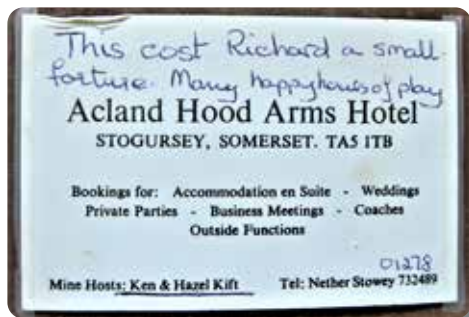 This cost Richard a small
fortune. Many happy hours of play
Acland Hood Arms Hotel
STOGURSEY, SOMERSET. TA5 1TB
Bookings for: Accommodation en Suite - Weddings
Private Parties - Business Meetings - Coaches
Outside Functions
01278
Mine Hosts: Ken & Hazel Kift Tel: Nether Stowey 732489